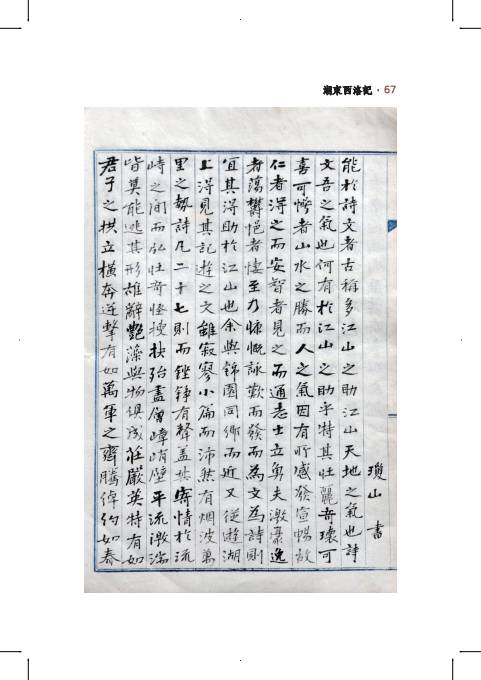 湖東西洛記 · 67
瓊山 書
能於詩文者古稱多江山之助江山天地之氣也詩
文吾之氣也何有於江山之助乎特其壯麗奇瓌可
喜可愕者山水之勝而人之氣因有所感發宣暢故
仁者得之而安智者見之而通志士立勇夫激豪逸
者蕩鬱悒者悽至乃慷慨詠歎而發而為文為詩則
宜其得助於江山也余與錦園同鄉而近又從遊湖
上得見其記遊之文雖寂寥小篇而沛然有烟波萬
里之勢詩凡二十七則而鏗錚有聲盖其寄情於流
峙之間而弘壯奇怪撓抉殆盡層嶂峭壁平流激湍
皆莫能逃其形雄辭艷藻與物俱成莊嚴英特有如
君子之拱立橫奔逆擊有如萬軍之齊騰倬約如春